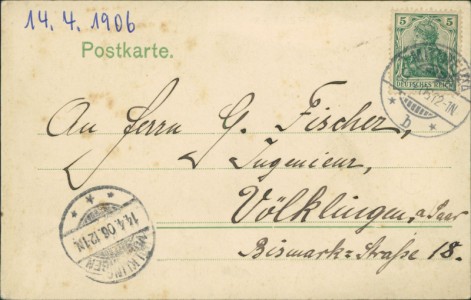 14. 4. 1906
Postkarte.
5 5
DEUTSCHES REICH
12-1N
b
An Herrn G. Fischer,
Ingenieur,
Völklingen, a. Saar
Bismark-Straße 18.
14.4.06.12-1N.